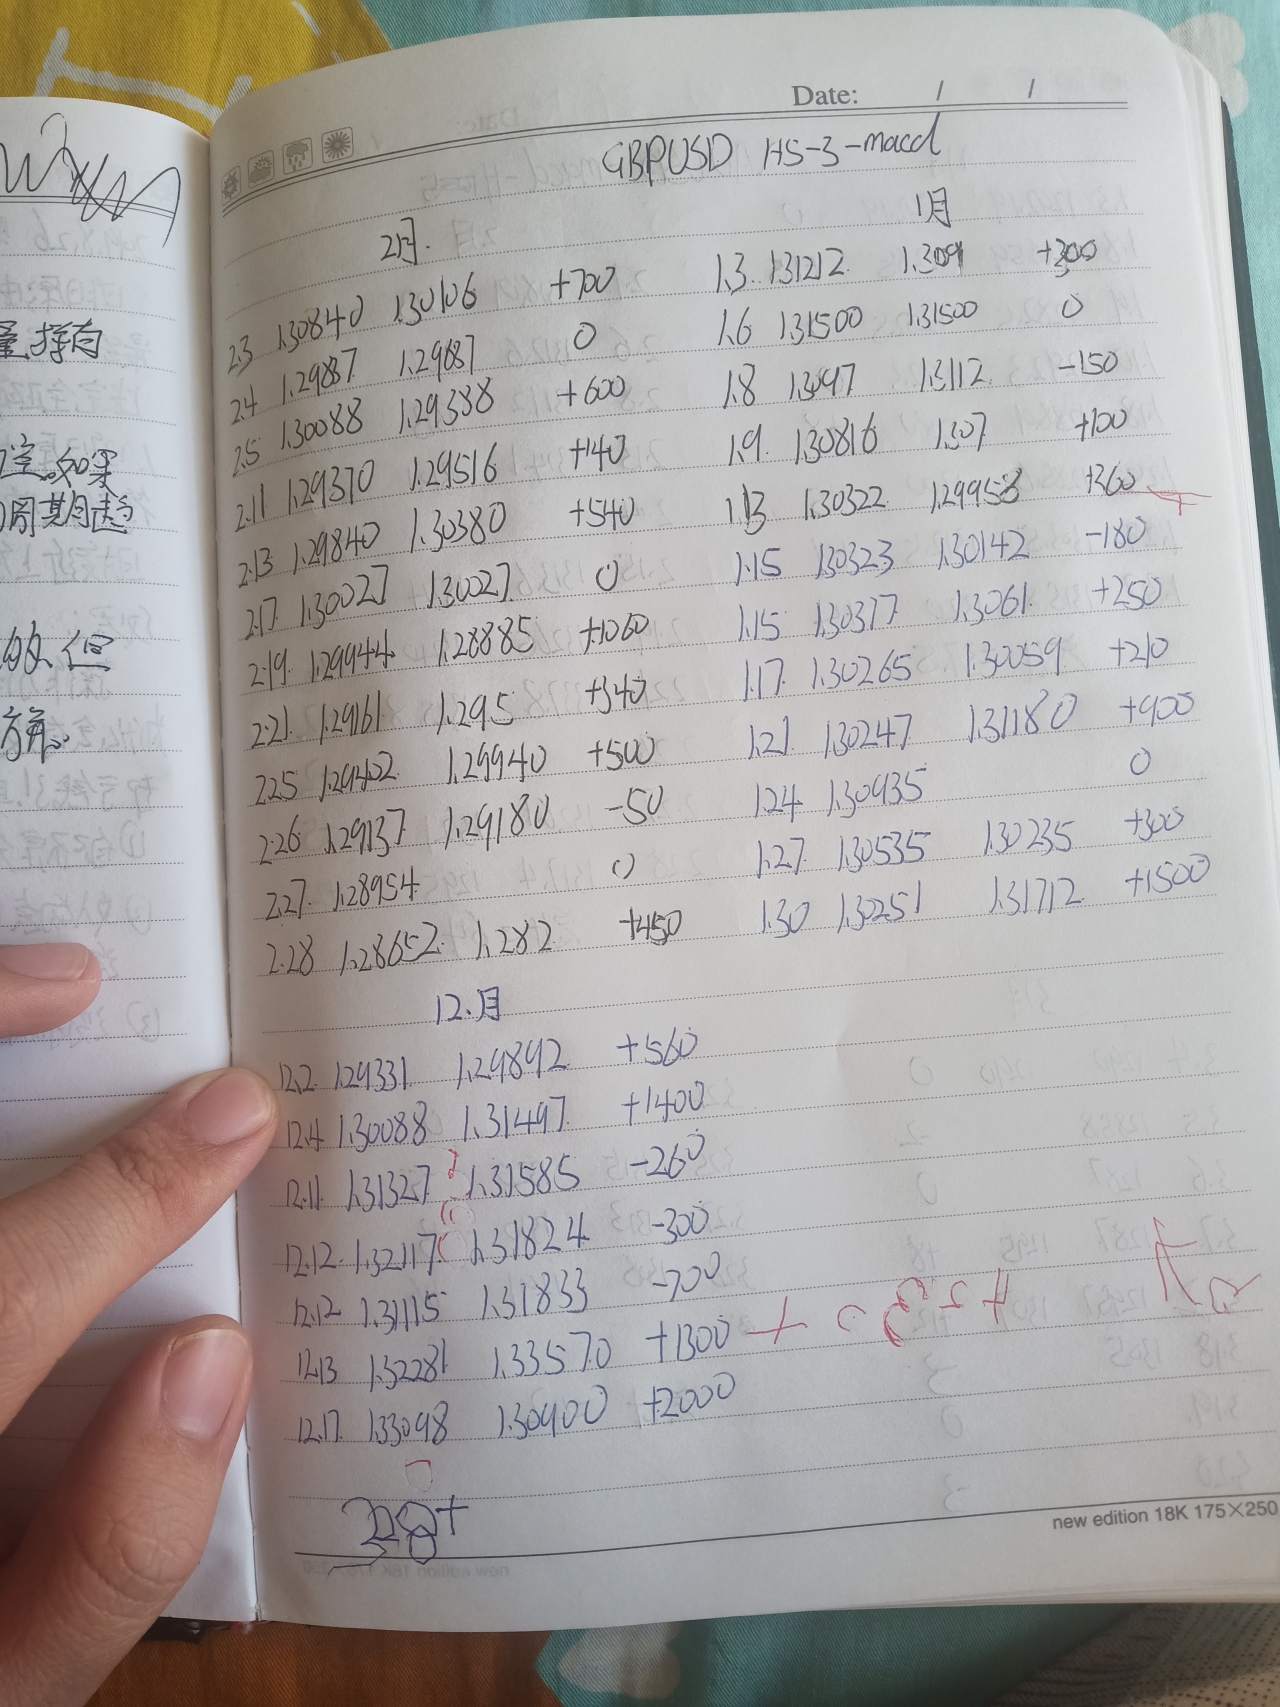 Date: / /
GBPUSD HS-3-macd
2月.
2.3 1.30840 1.30106 +700
2.4 1.29887 1.29887 0
2.5 1.30088 1.29388 +600
2.11 1.29370 1.29516 +140
2.13 1.29840 1.30380 +540
2.17 1.30027 1.30027 0
2.19. 1.29944 1.28885 +1060
2.21. 1.29161 1.295 +340
2.25 1.29402 1.29940 +500
2.26 1.29137 1.29180 -50
2.27. 1.28954 0
2.28 1.28652 1.282 +450
1月
1.3. 1.31212 1.309 +300
1.6 1.31500 1.31500 0
1.8 1.3097 1.3112 -150
1.9. 1.30816 1.307 +100
1.13 1.30322 1.29958 +360
1.15 1.30323 1.30142 -180
1.15 1.30317 1.3061 +250
1.17. 1.30265 1.30059 +210
1.21. 1.30247 1.31180 +900
1.24 1.30935 0
1.27. 1.30535 1.30235 +300
1.30 1.30251 1.31712 +1500
12.月
12.2. 1.29331 1.29892 +560
12.4 1.30088 1.31497 +1400
12.11 1.31327 1.31585 -260
12.12. 1.32117 1.31824 -300
12.12 1.31115 1.31833 -700
12.13 1.32281 1.33570 +1300
12.17. 1.33098 1.30900 +2000
new edition 18K 175×250
择有
如果
周期趋
但
方向